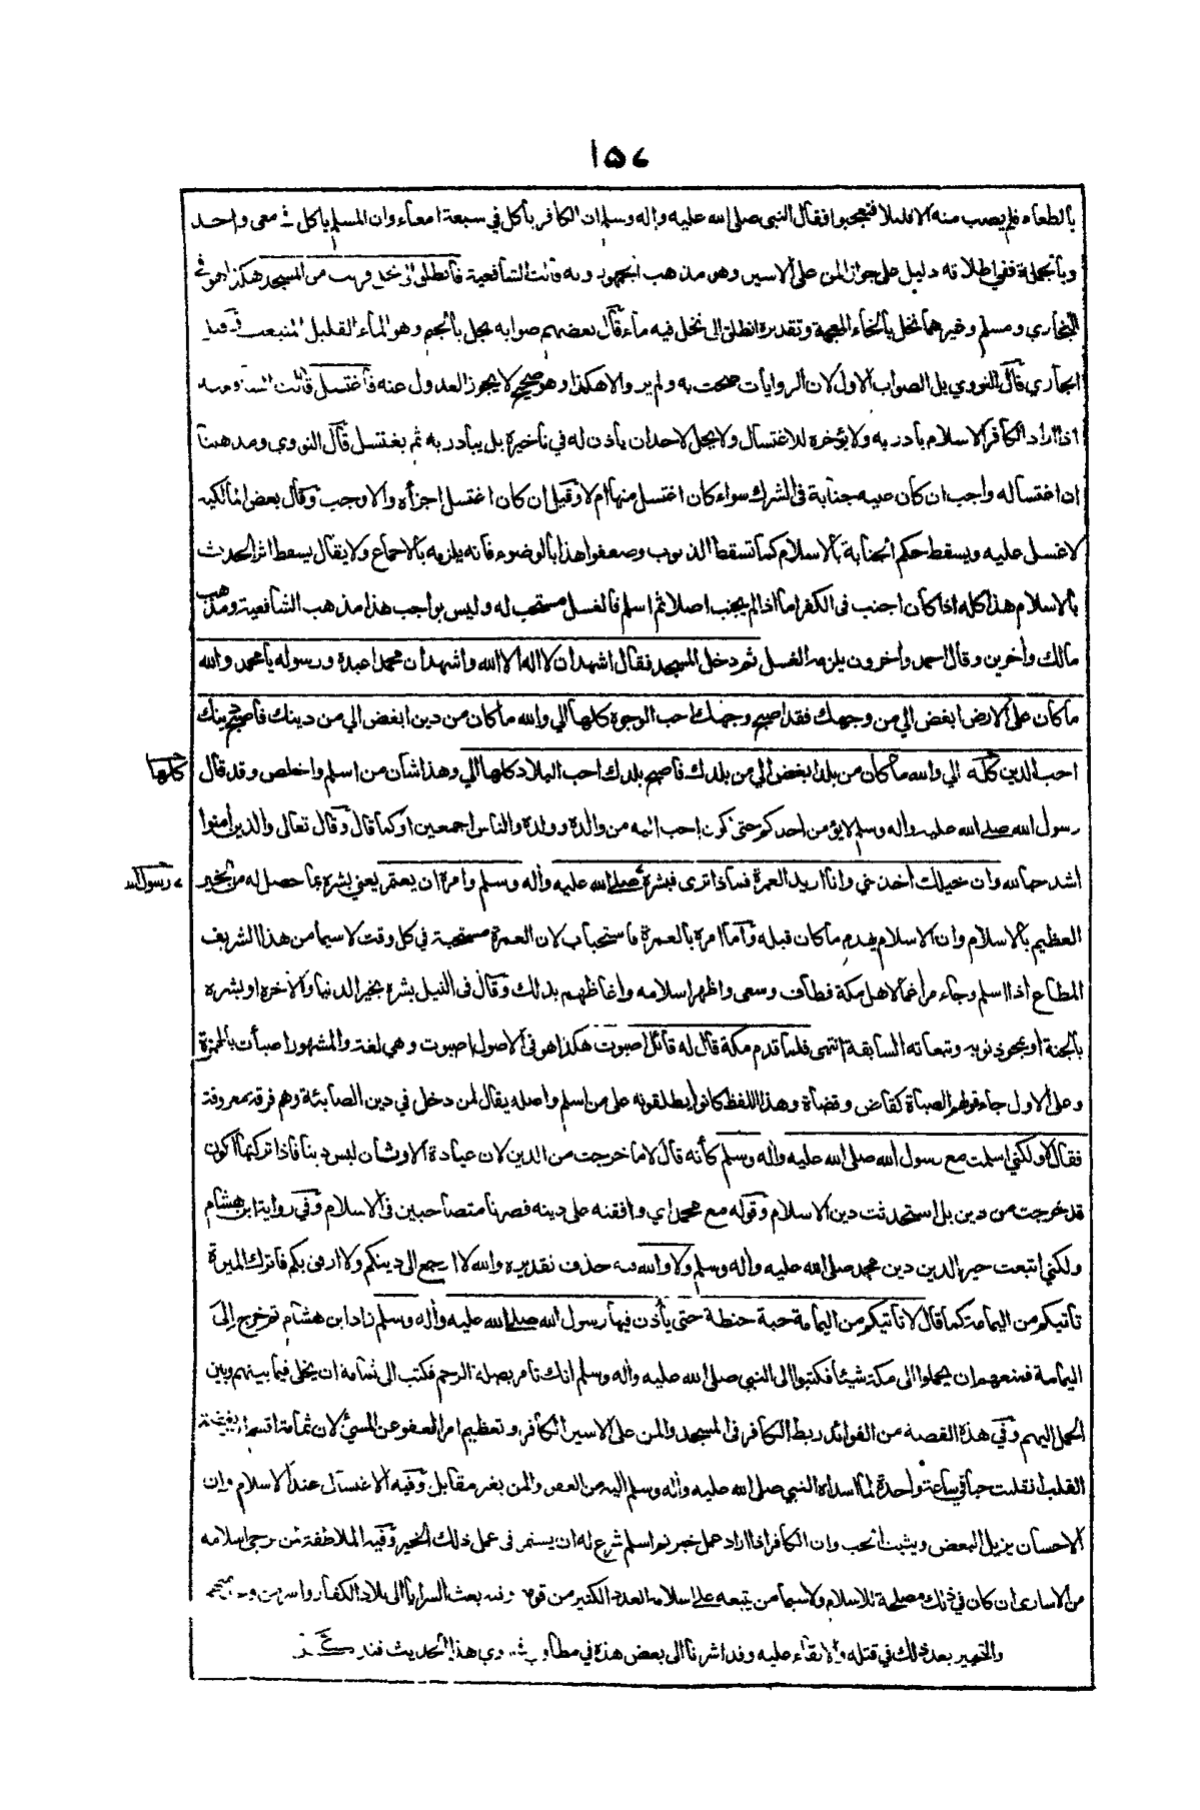 ١٥٧
بالطعام فلم يصب منه الا قليلا فتعجبوا فقال النبي صلى الله عليه واله وسلم ان الكافر يأكل في سبعة امعاء وان المسلم ياكل في معى واحد
وبالجملة ففي اطلاقه دليل على جواز المن على الاسير وهو مذهب الجمهور وبه قالت الشافعية فانطلق الى نخل قريب من المسجد هكذا هو في
البخاري ومسلم وغيرهما نخل بالخاء المعجمة وتقديره انطلق الى نخل فيه ماء قال بعضهم صوابه نجل بالجيم وهو الماء القليل المنبعث
الجاري قال النووي بل الصواب الاول لان الروايات صحت به ولم يرو الا هكذا وهو صحيح لا يجوز العدول عنه فاغتسل قالت
اذا اراد الكافر الاسلام بادر به ولا يؤخره للاغتسال ولا يحل لاحد ان يأذن له في تأخيره بل يبادر به ثم يغتسل قال النووي ومذهبنا
ان اغتساله واجب ان كان عليه جنابة في الشرك سواء كان اغتسل منها ام لا وقيل ان كان اغتسل اجزأه والا وجب وقال بعض المالكية
لا غسل عليه ويسقط حكم الجنابة بالاسلام كما تسقط الذنوب وضعفوا هذا بالوضوء فانه يلزمه بالاجماع ولا يقال يسقط اثر الحدث
بالاسلام هذا كله اذا كان اجنب في الكفر اما اذا لم يجنب اصلا ثم اسلم فالغسل مستحب له وليس بواجب هذا مذهب الشافعية ومذهب
مالك وأخرين وقال احمد وأخرون يلزمه الغسل ثم دخل المسجد فقال اشهد ان لا اله الا الله واشهد ان محمدا عبده ورسوله يا محمد والله
ما كان على الارض ابغض الي من وجهك فقد اصبح وجهك احب الوجوه كلها الي والله ما كان من دين ابغض الي من دينك فأصبح دينك
احب الدين كله الي والله ما كان من بلد ابغض الي من بلدك فأصبح بلدك احب البلاد كلها الي وهذا شأن من اسلم واخلص وقد قال
كلها
رسول الله صلى الله عليه واله وسلم لا يؤمن احدكم حتى اكون احب اليه من والده وولده والناس اجمعين او كما قال وقال تعالى والذين امنوا
اشد حبا لله وان خيلك اخذتني وانا اريد العمرة فماذا ترى فبشره صلى الله عليه واله وسلم وامره ان يعتمر يعني بشره بما حصل له من الخير
رسول الله
العظيم بالاسلام وان الاسلام يهدم ما كان قبله وأما امره بالعمرة فاستحباب لان العمرة مستحبة في كل وقت لا سيما من هذا الشريف
المطاع اذا اسلم وجاء مراغما لاهل مكة فطاف وسعى واظهر اسلامه واغاظهم بذلك وقال في النيل بشره بخير الدنيا والآخرة او بشره
بالجنة او بمحو ذنوبه وتبعاته السابقة انتهى فلما قدم مكة قال له قائل اصبوت هكذا هو في الاصول اصبوت وهي لغة والمشهور اصبأت بالهمزة
وعلى الاول جاء قولهم الصباة كقاض وقضاة وهذا اللفظ كانوا يطلقونه على من اسلم واصله يقال لمن دخل في دين الصابئة وهم فرقة معروفة
فقال لا ولكني اسلمت مع رسول الله صلى الله عليه واله وسلم كأنه قال لا ما خرجت من الدين لان عبادة الاوثان ليس دينا فاذا تركتها اكون
قد خرجت من دين بل استحدثت دين الاسلام وقوله مع محمد اي وافقته على دينه فصرنا متصاحبين في الاسلام وفي رواية ابن هشام
ولكني اتبعت خير الدين دين محمد صلى الله عليه واله وسلم ولا والله فيه حذف تقديره والله لا ارجع الى دينكم ولا ارفق بكم فاترك الميرة
تأتيكم من اليمامة كما قال لا تأتيكم من اليمامة حبة حنطة حتى يأذن فيها رسول الله صلى الله عليه واله وسلم زاد ابن هشام ثم خرج الى
اليمامة فمنعهم ان يحملوا الى مكة شيئا فكتبوا الى النبي صلى الله عليه واله وسلم انك تامر بصلة الرحم فكتب الى ثمامة ان يخلي فيما بينهم وبين
الحمل اليهم وفي هذه القصة من الفوائد ربط الكافر في المسجد والمن على الاسير الكافر وتعظيم امر العفو عن المسيئ لان ثمامة اقسم ان بغضة
القلب انقلبت حبا في ساعة واحدة لما اسداه النبي صلى الله عليه واله وسلم اليه من العفو والمن بغير مقابل وفيه الاغتسال عند الاسلام وان
الاحسان يزيل البغض ويثبت الحب وان الكافر اذا اراد عمل خير ثم اسلم شرع له ان يستمر في عمل ذلك الخير وفيه الملاطفة لمن يرجى اسلامه
من الاسارى ان كان في ذلك مصلحة للاسلام ولا سيما من يتبعه على اسلامه العدد الكثير من قومه وفيه بعث السرايا الى بلاد الكفار واسر من وجد منهم
والتخيير بعد ذلك في قتله والابقاء عليه وقد اشرنا الى بعض هذه في مطاوي هذا الحديث